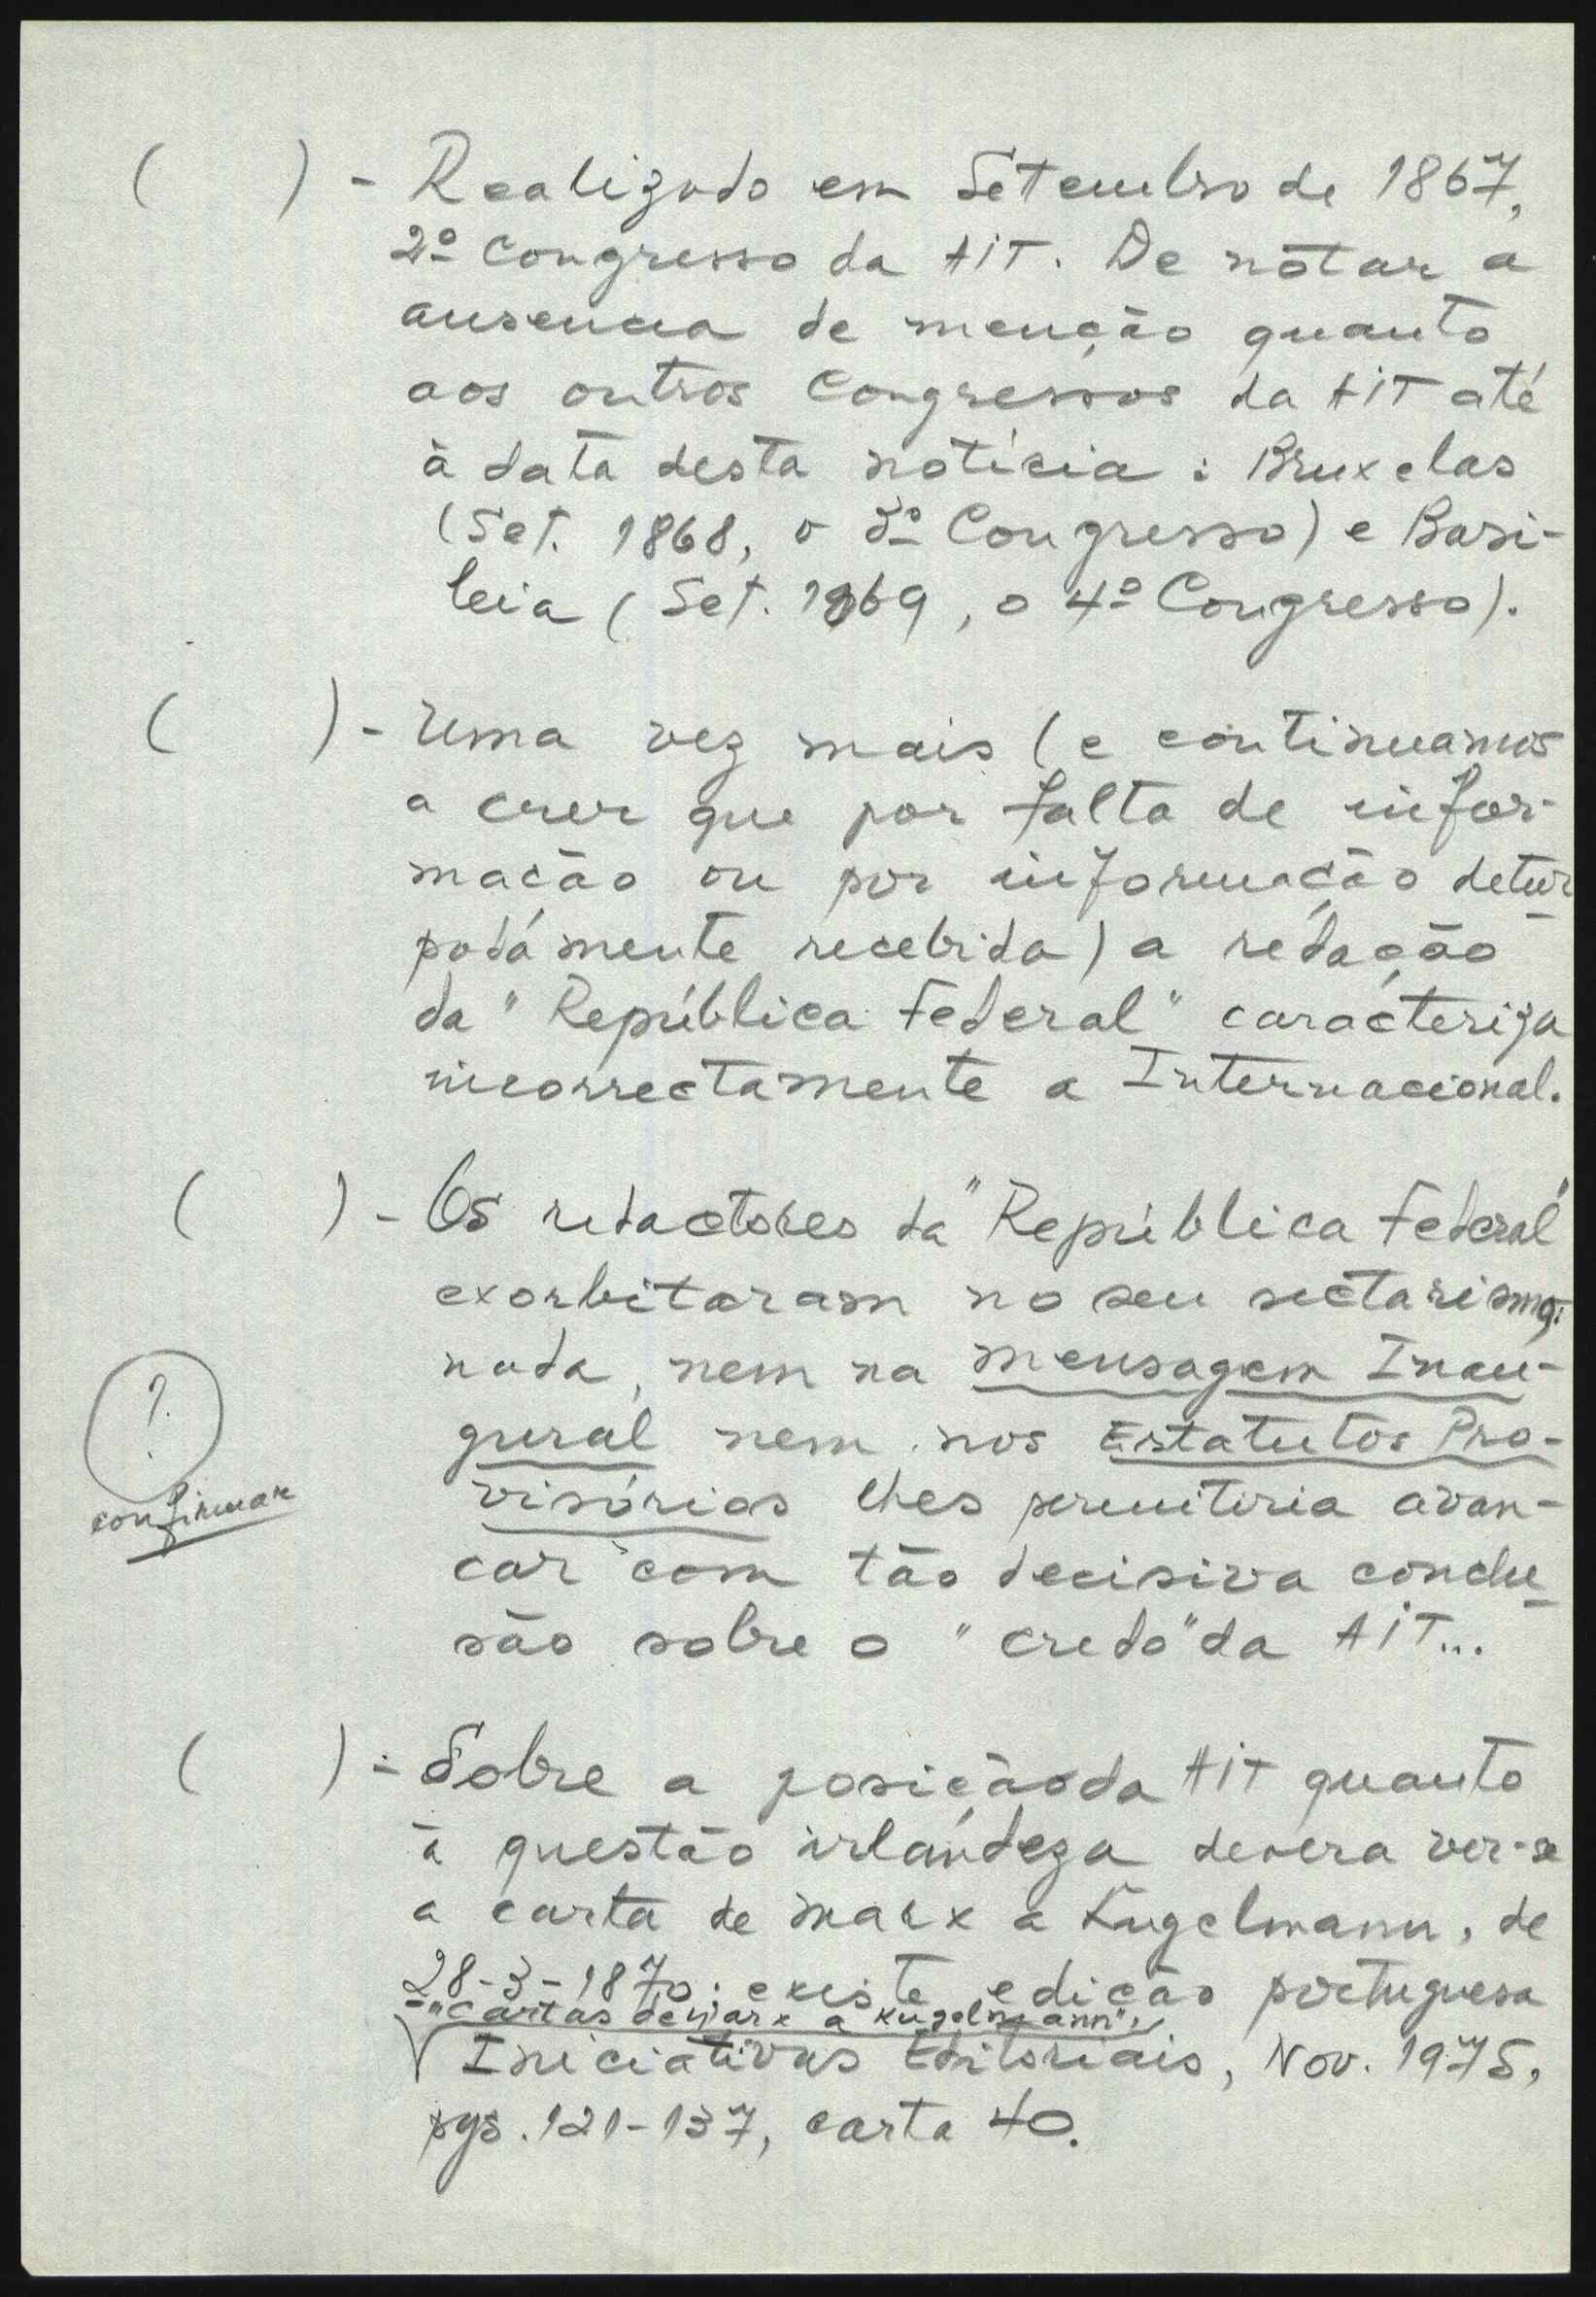 ( ) - Realizado em Setembro de 1867,
2º Congresso da AIT. De notar a
ausencia de menção quanto
aos outros Congressos da AIT até
à data desta notícia : Bruxelas
(Set. 1868, o 3º Congresso) e Basi-
leia (Set. 1869, o 4º Congresso).
( ) - Uma vez mais (e continuamos
a crer que por falta de infor-
mação ou por informação detur-
padamente recebida) a redação
da "República Federal" caracteriza
incorrectamente a Internacional.
( ) - Os redactores da "República Federal"
exorbitaram no seu sectarismo:
nada, nem na mensagem Inau-
gural nem nos Estatutos Pro-
visórios lhes permitiria avan-
çar com tão decisiva conclu-
são sobre o "credo" da AIT...
?
confirmar
( ) - Sobre a posição da AIT quanto
à questão irlandeza devera ver-se
a carta de Marx a Kugelmann, de
28-3-1870; existe edição portuguesa
- "Cartas de Marx a Kugelmann",
Iniciativas Editoriais, Nov. 1975,
pgs. 121-137, carta 40.